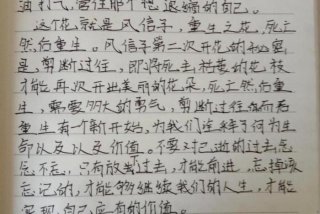 油打气,管住那个想退缩的自己。
这花就是风信子,重生之花,死亡
然后重生。风信子第二次开花的秘密
是,剪断过往,即将死去、枯萎的花枝
才能再次开出美丽的花朵,死亡然后重
生,需要强大的勇气,剪断过往
重生有一个新开始,为我们诠释了何为生
命以及以及价值。不要对已逝的过去念
念不忘,只有放下过去,才能前进,忘掉该
忘记的,才能够继续我们的人生,才能
实现自己应有的价值。